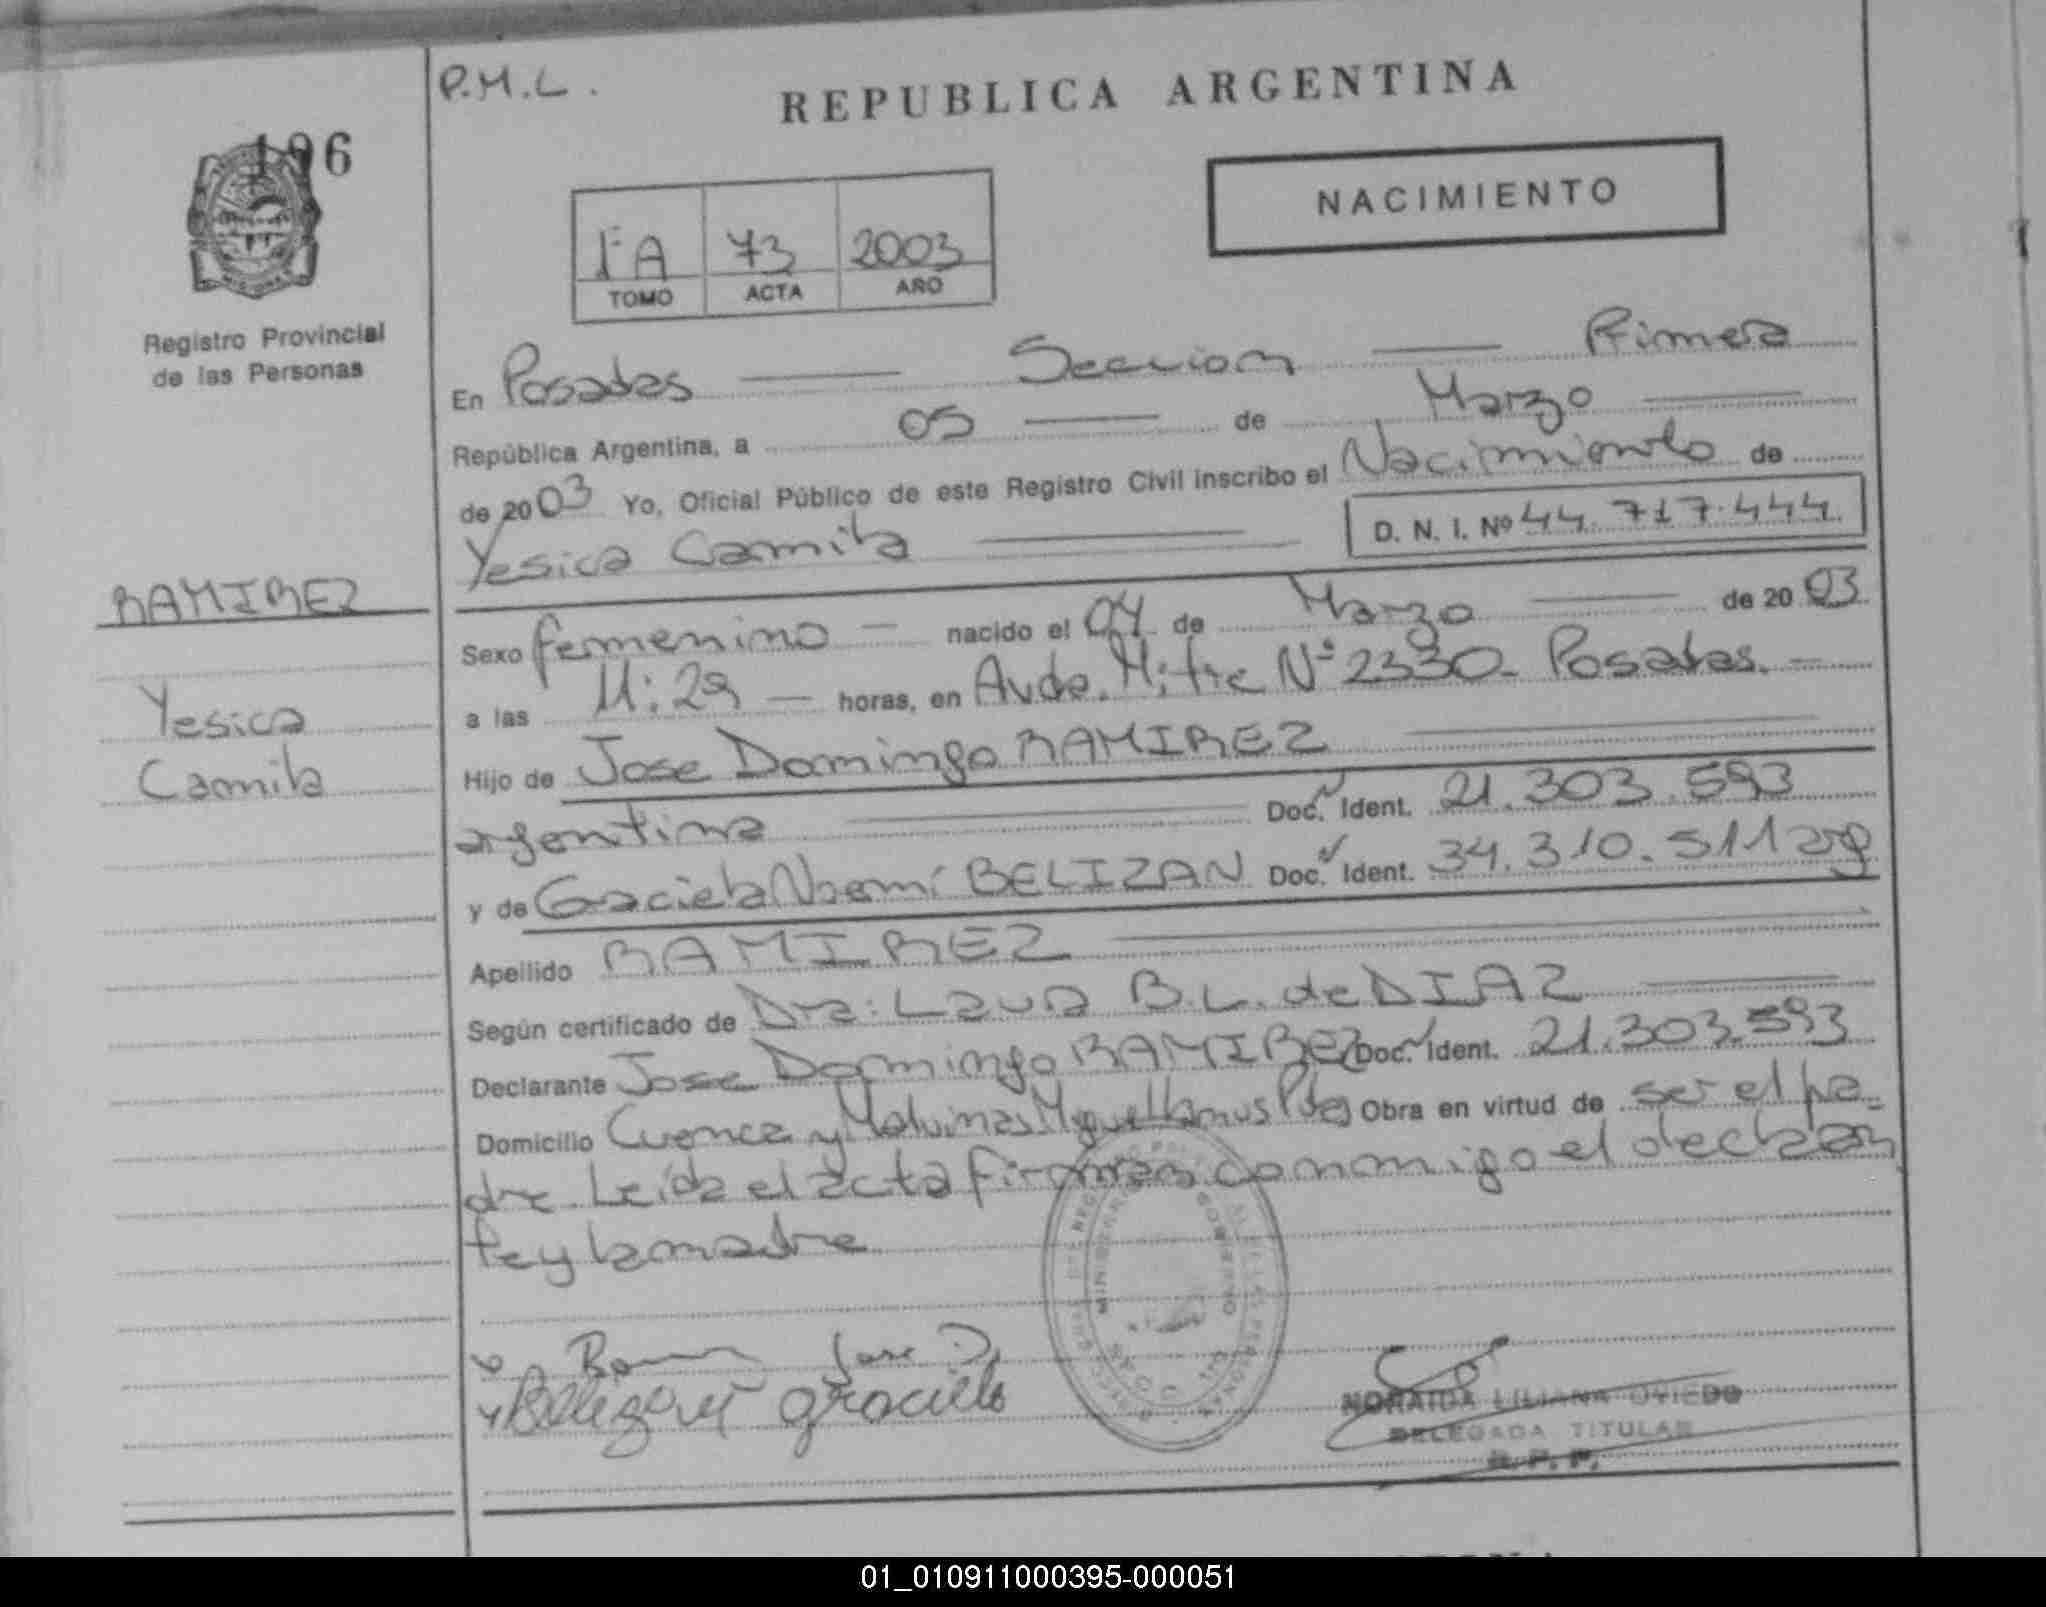 P.M.L.
REPUBLICA ARGENTINA
196
NACIMIENTO
1ºA 73 2003
TOMO ACTA AÑO
Registro Provincial
de las Personas
En Posadas Seccion Primera
República Argentina, a 05 de Marzo
de 2003 Yo, Oficial Público de este Registro Civil inscribo el Nacimiento de
Yesica Camila D. N. I. Nº 44.717.444
RAMIREZ
Yesica
Camila
Sexo femenino nacido el 04 de Marzo de 2003
a las 11:29 horas, en Avda. Mitre Nº 2330 - Posadas.
Hijo de Jose Domingo RAMIREZ
argentina Doc. Ident. 21.303.593
y de Graciela Noemí BELIZAN Doc. Ident. 34.310.511 arg
Apellido RAMIREZ
Según certificado de Dra: Laura B.L. de DIAZ
Declarante Jose Domingo RAMIREZ Doc. Ident. 21.303.593
Domicilio Cuenca y Malvinas Miguel Lanus Pdas Obra en virtud de ser el pa-
dre. Leída el acta firman conmigo el declaran
te y la madre
Jose D.
Belizan graciela
NORAIDA LILIANA OVIEDO
DELEGADA TITULAR
R. P. P.
01_010911000395-000051